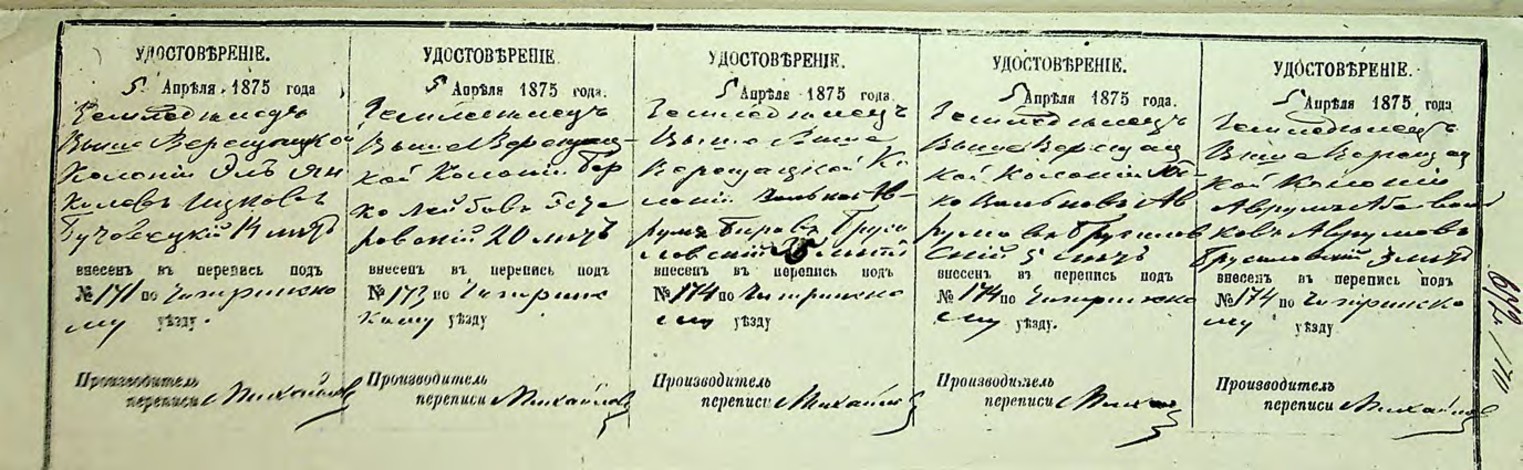 УДОСТОВѢРЕНІЕ.
5 Апрѣля 1875 года
Земледѣлецъ
Выше Верещацкой
Колоніи Эль Ян
келевъ Ицковъ
лѣтъ
внесенъ въ перепись подъ
№ 171 по Чигиринско
му уѣзду.
Производитель
переписи Михайловъ
УДОСТОВѢРЕНІЕ.
5 Апрѣля 1875 года.
Земледѣлецъ
Выше Верещац-
кой Колоніи Бер
ко Лейбовъ
20 лѣтъ
внесенъ въ перепись подъ
№ 173 по Чигиринс
кому уѣзду
Производитель
переписи Михайловъ
УДОСТОВѢРЕНІЕ.
5 Апрѣля 1875 года
Земледѣлецъ
Выше
Верещацкой Ко
лоніи Ав-
румъ Бруси
ловскій
внесенъ въ перепись подъ
№ 174 по Чигиринско
му уѣзду
Производитель
переписи Михайловъ
УДОСТОВѢРЕНІЕ.
5 Апрѣля 1875 года.
Земледѣлецъ
Выше Верещац
кой Колоніи
Ав
румовъ Брусилов
скій 5 лѣтъ
внесенъ въ перепись подъ
№ 174 по Чигиринско
му уѣзду.
Производитель
переписи
УДОСТОВѢРЕНІЕ.
5 Апрѣля 1875 года
Земледѣлецъ
Выше Верещац
кой Колоніи
Аврумъ
ковъ Аврумовъ
Брусиловскій 3 лѣтъ
внесенъ въ перепись подъ
№ 174 по Чигиринско
му уѣзду.
Производитель
переписи Михайловъ